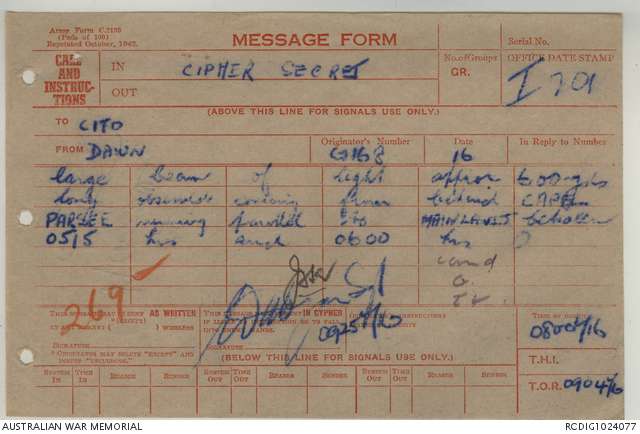 Army Form C.2136
(Pads of 100)
Reprinted October, 1942.
MESSAGE FORM
Serial No.
CALL AND INSTRUCTIONS
IN CIPHER SECRET
No. of Groups
GR.
OFFICE DATE STAMP
I 201
OUT
(ABOVE THIS LINE FOR SIGNALS USE ONLY.)
TO CITO
FROM DAWN
Originator's Number G168
Date 16
In Reply to Number
large beam of light approx 600 yds
long observed coming from behind CAPE
running parallel to between
0515 hrs and 0600 hrs
269
THIS MESSAGE MAY BE SENT AS WRITTEN
BY WIRELESS
SIGNATURE
IN CYPHER
ORIGINATOR'S INSTRUCTIONS
TIME OF ORIGIN
0925/16
0800/16
(BELOW THIS LINE FOR SIGNALS USE ONLY.)
T.H.I.
SYSTEM IN TIME IN READER SENDER SYSTEM OUT TIME OUT READER SENDER SYSTEM OUT TIME OUT READER SENDER
T.O.R. 0904/16
AUSTRALIAN WAR MEMORIAL
RCDIG1024077